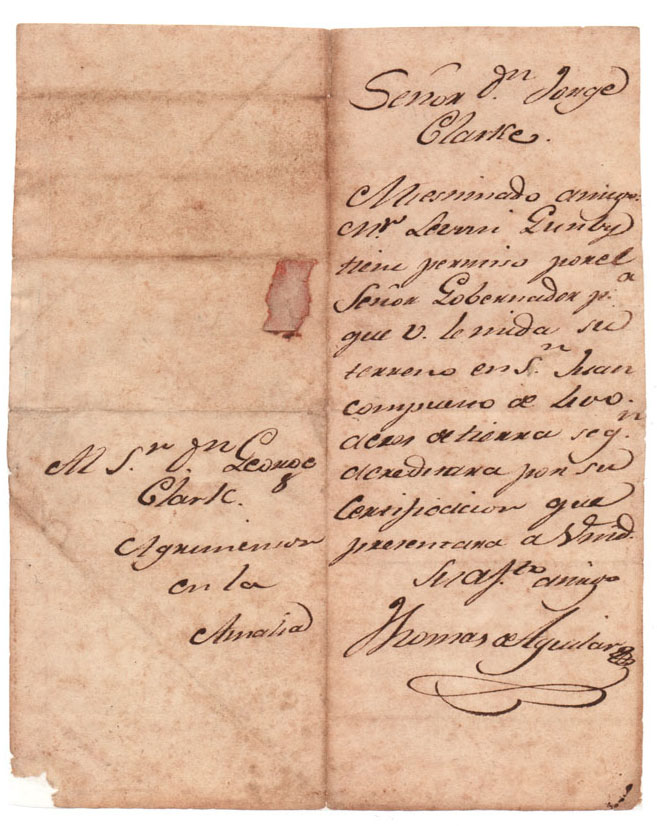 Señor Dn. Jorge
Clarke.
Mi estimado amigo.
Mr. Levin Gunby
tiene permiso por el
Señor Gobernador pa.
que V. le mida su
terreno en Sn. Juan
compueno de 400.
acres de tierra segn.
acreditara por su
Certificacion que
presentara a Vmd.
Su afto. amigo
Thomas de Aguilar
Al Sr. Dn. George
Clark.
Agrimensor
en la
Amalia